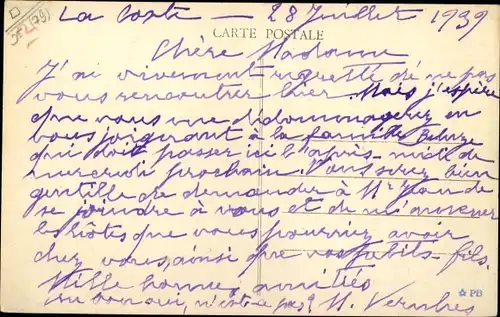 La Coste – 28 Juillet 1939
CARTE POSTALE
Chère Madame
J'ai vivement regretté de ne pas
vous rencontrer hier. Mais j'espère
que vous me dédommagerez en
vous joignant à la famille
qui doit passer ici l'après-midi de
mercredi prochain. Vous serez bien
gentille de demander à Mr Jean de
se joindre à vous et de m'amener
les hôtes que vous pourriez avoir
chez vous, ainsi que vos petits-fils.
Mille bonnes amitiés
au bon oui, n'est-ce pas? M.
PB